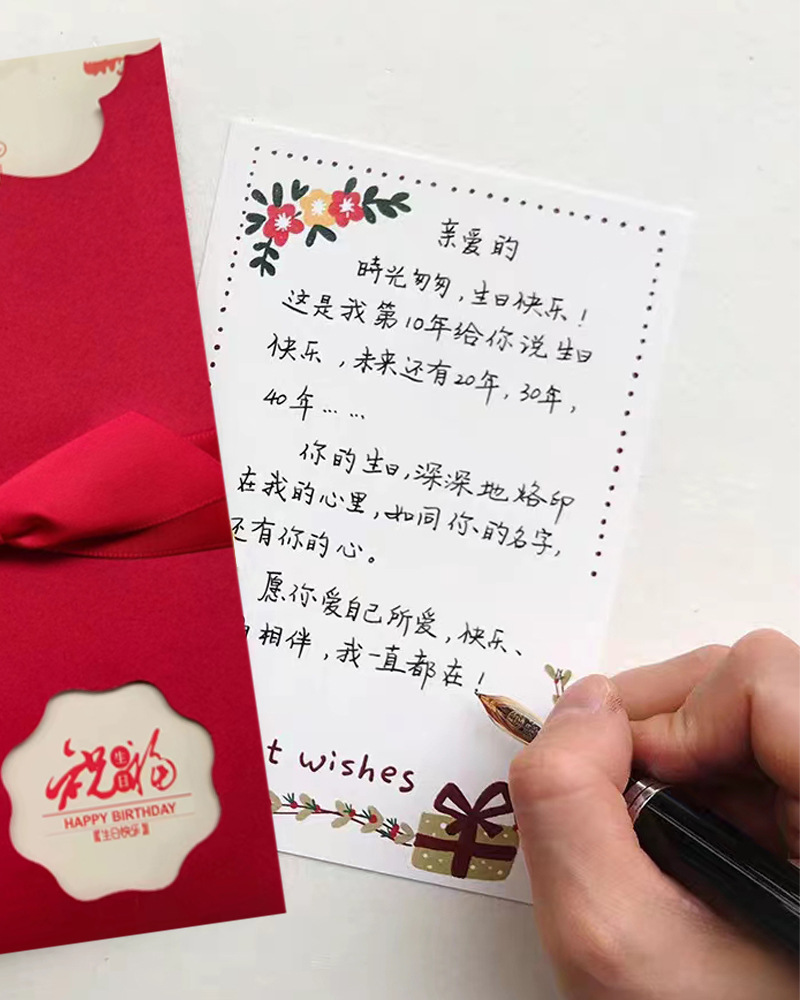 亲爱的
時光匆匆，生日快乐！
这是我第10年给你说生日
快乐，未来还有20年，30年，
40年……
你的生日，深深地烙印
在我的心里，如同你的名字，
还有你的心。
愿你爱自己所爱，快乐、
相伴，我一直都在！
t wishes
祝福
生日
HAPPY BIRTHDAY
【生日快乐】